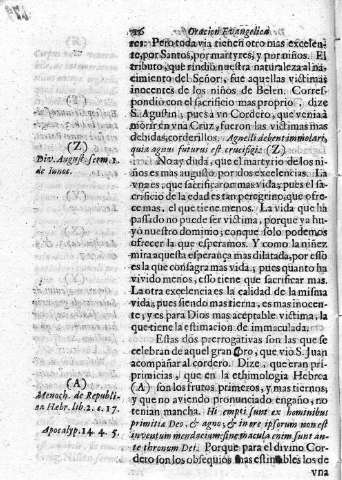 16 Oracion Evangelica
res: Pero toda via tienen otro mas excelen-
te, por Santos, por martyres, y por niños. El
tributo, que rindiò nuestra naturaleza al na-
cimiento del Señor, fue aquellas victimas
innocentes de los niños de Belen. Corres-
pondiò con el sacrificio mas proprio, dize
S. Agustin, pues à vn Cordero, que venia à
mòrir en vna Cruz, fueron las victimas mas
debidas, corderillos. Agnelli debent immolari,
quia agnus futurus est crucifigi: (Z)
(Z)
Div. August. serm. 1.
de Innoc.
No ay duda, que el martyrio de los ni-
ños es mas augusto, por dos excelencias. La
vna es, que sacrificaron mas vida; pues el sa-
crificio de la edad es tan peregrino, que ofre-
ce mas, el que tiene menos. La vida que hà
passado no puede ser victima, porque ya hu-
yò nuestro dominio; con que solo podemos
ofrecer la que esperamos. Y como la niñez
mira aquesta esperança mas dilatada, por esso
es la que consagra mas vida; pues quanto ha
vivido menos, esso tiene que sacrificar mas.
La otra excelencia es la calidad de la misma
vida; pues siendo mas tierna, es mas inocen-
te, y es para Dios mas aceptable victima, la
que tiene la estimacion de immaculada.
Estas dos prerrogativas son las que se
celebran de aquel gran Coro, que viò S. Juan
acompañar al cordero. Dize, que eran pri-
primicias, que en la ethimologia Hebrea
(A) son los frutos primeros, y mas tiernos;
y que no aviendo pronunciado engaño, no
tenian mancha. Hi empti sunt ex hominibus
primitiæ Deo, & agno; & in ore ipsorum non est
inventum mendacium: sine macula enim sunt an-
te thronum Dei. Porque para el divino Cor-
dero son los obsequios mas estimables los de
vna
(A)
Menoch. de Republi-
ca Hebr. lib. 2. c. 17.
Apocalyp. 14. 4. 5.